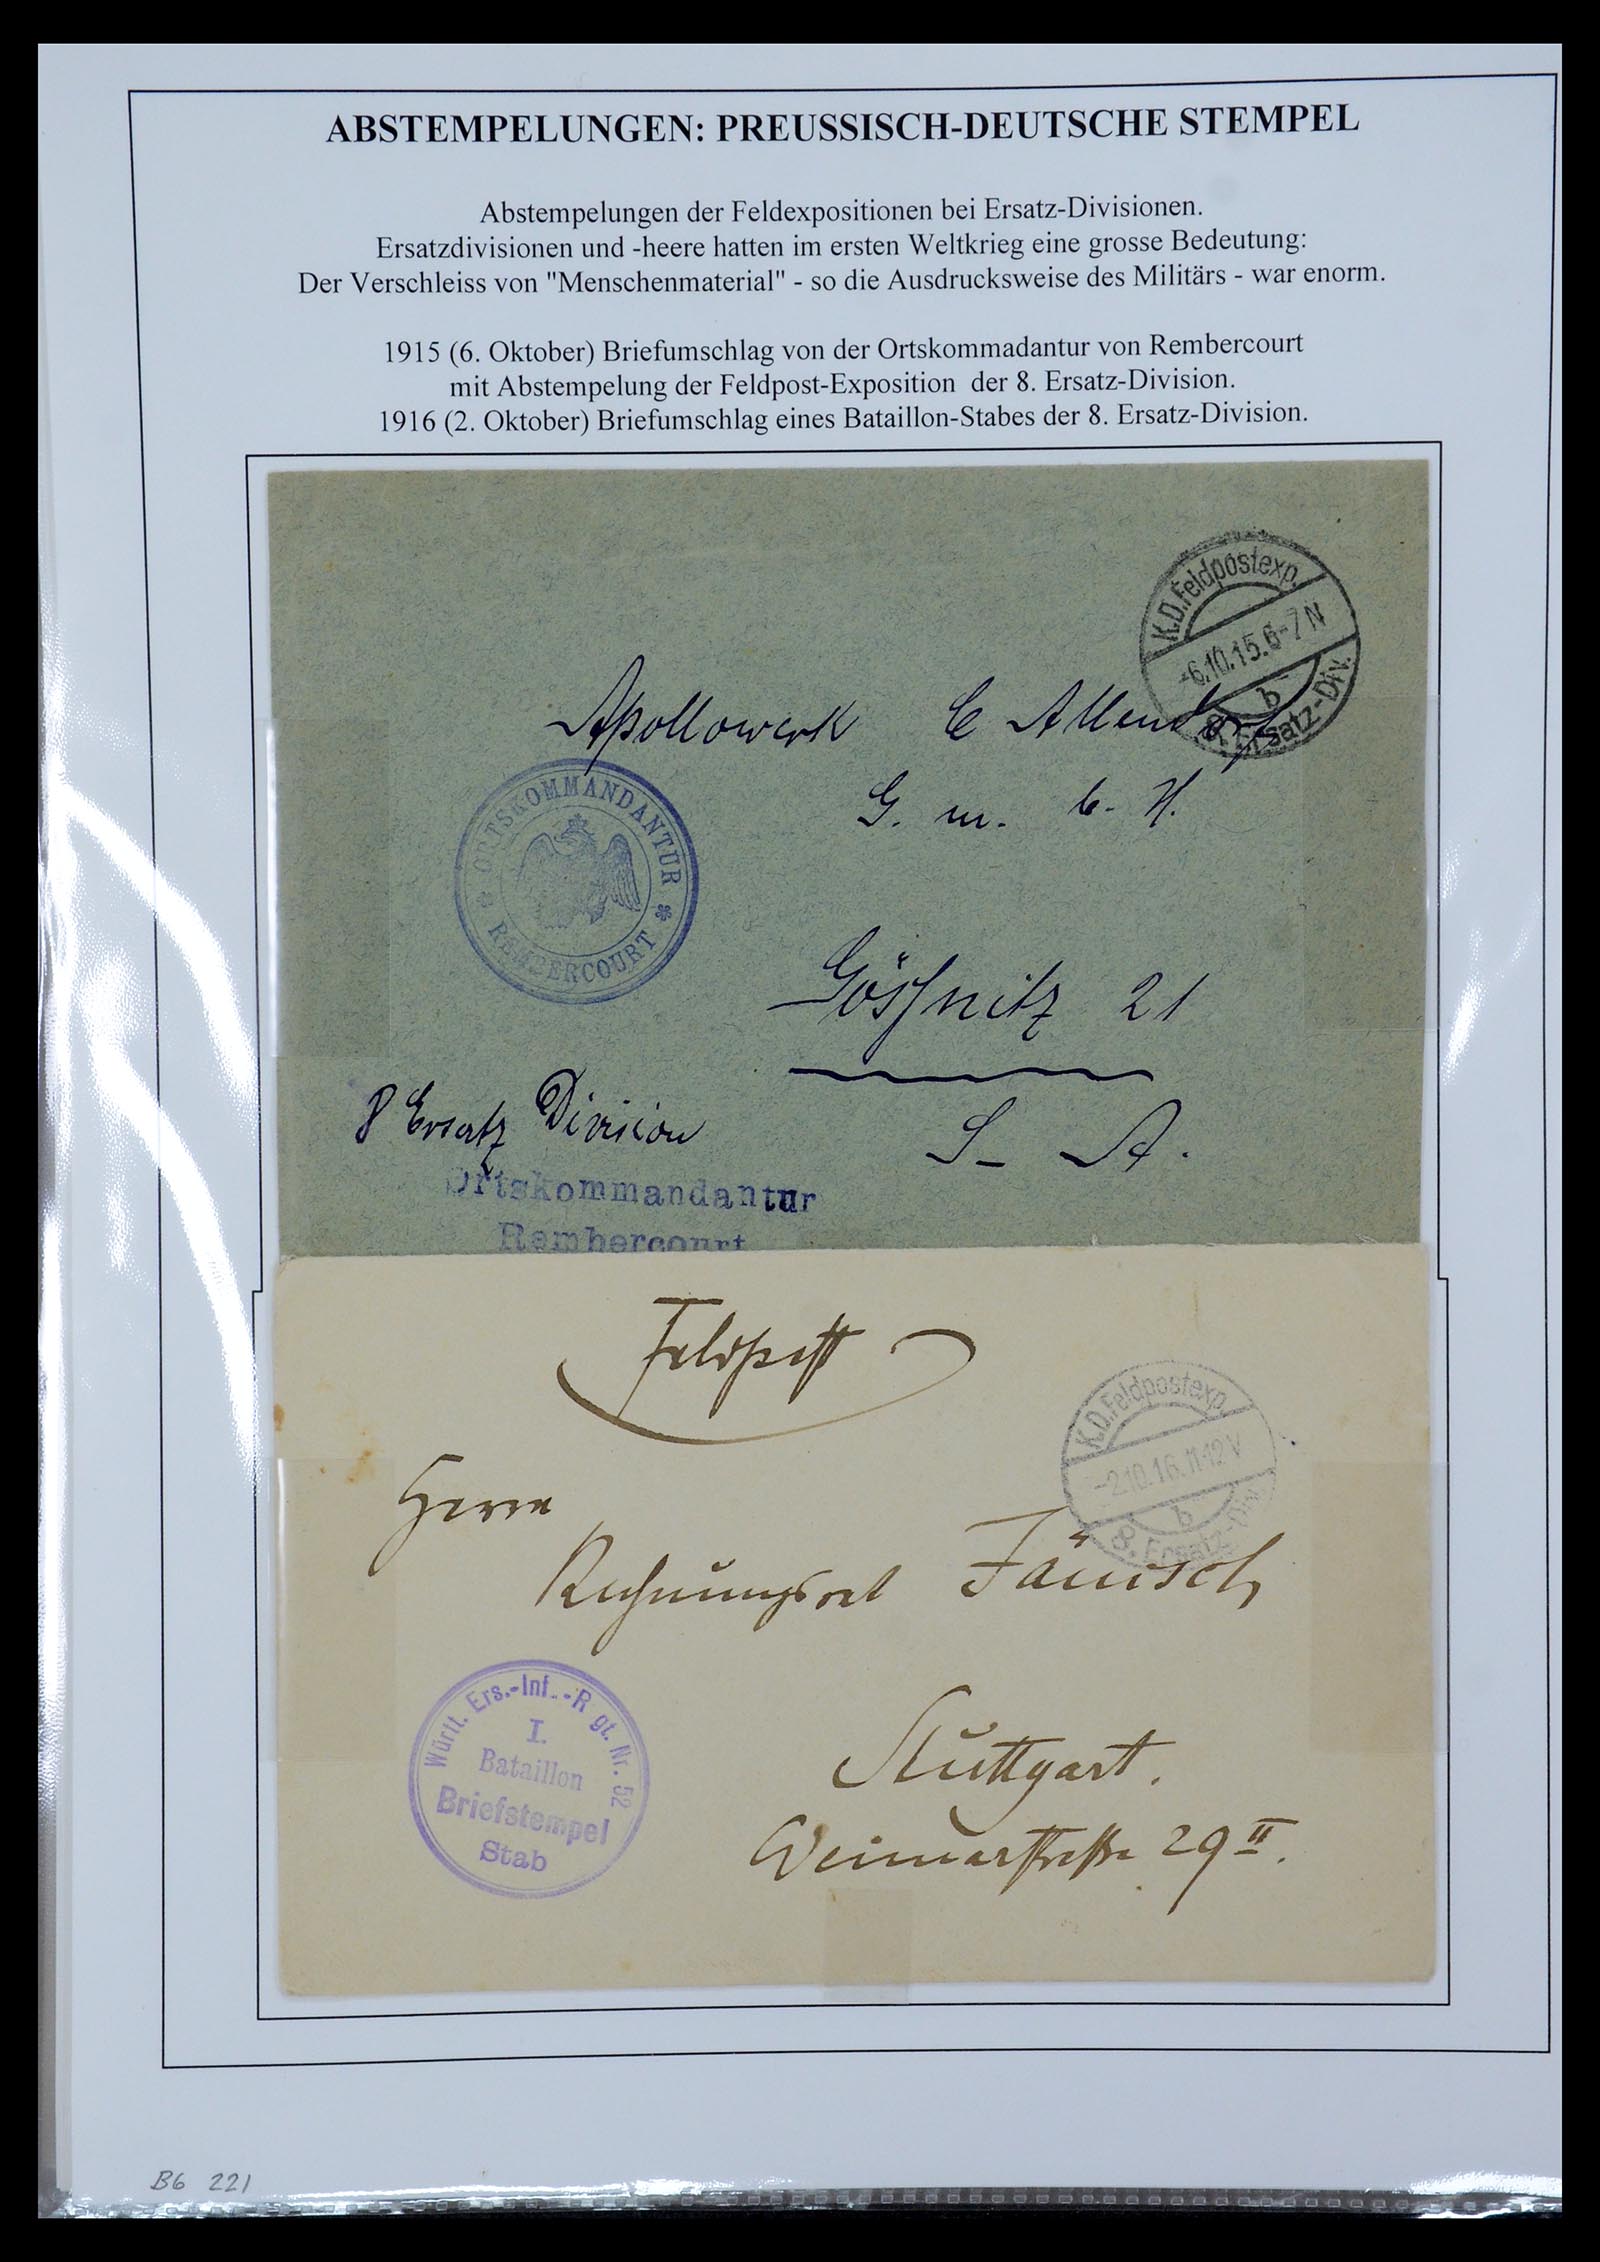 ABSTEMPELUNGEN: PREUSSISCH-DEUTSCHE STEMPEL
Abstempelungen der Feldexpositionen bei Ersatz-Divisionen.
Ersatzdivisionen und -heere hatten im ersten Weltkrieg eine grosse Bedeutung:
Der Verschleiss von "Menschenmaterial" - so die Ausdrucksweise des Militärs - war enorm.
1915 (6. Oktober) Briefumschlag von der Ortskommadantur von Rembercourt
mit Abstempelung der Feldpost-Exposition der 8. Ersatz-Division.
1916 (2. Oktober) Briefumschlag eines Bataillon-Stabes der 8. Ersatz-Division.
K.D.Feldpostexp.
-6.10.15.6-7 N
b
8. Ersatz-Div.
Apollowerk C Allendorf
G. m. b. H.
ORTSKOMMANDANTUR
REMBERCOURT
Gössnitz 21
8 Ersatz Division
S- A.
Ortskommandantur
Rembercourt
Feldpost
K.D.Feldpostexp.
-2.10.16.11-12 V
b
8. Ersatz-Div.
Herrn
Rechnungsrat Jänisch
Württ. Ers.-Inf.-Rgt. Nr. 52
I.
Bataillon
Briefstempel
Stab
Stuttgart.
Weimarstraße 29 II.
B6 221